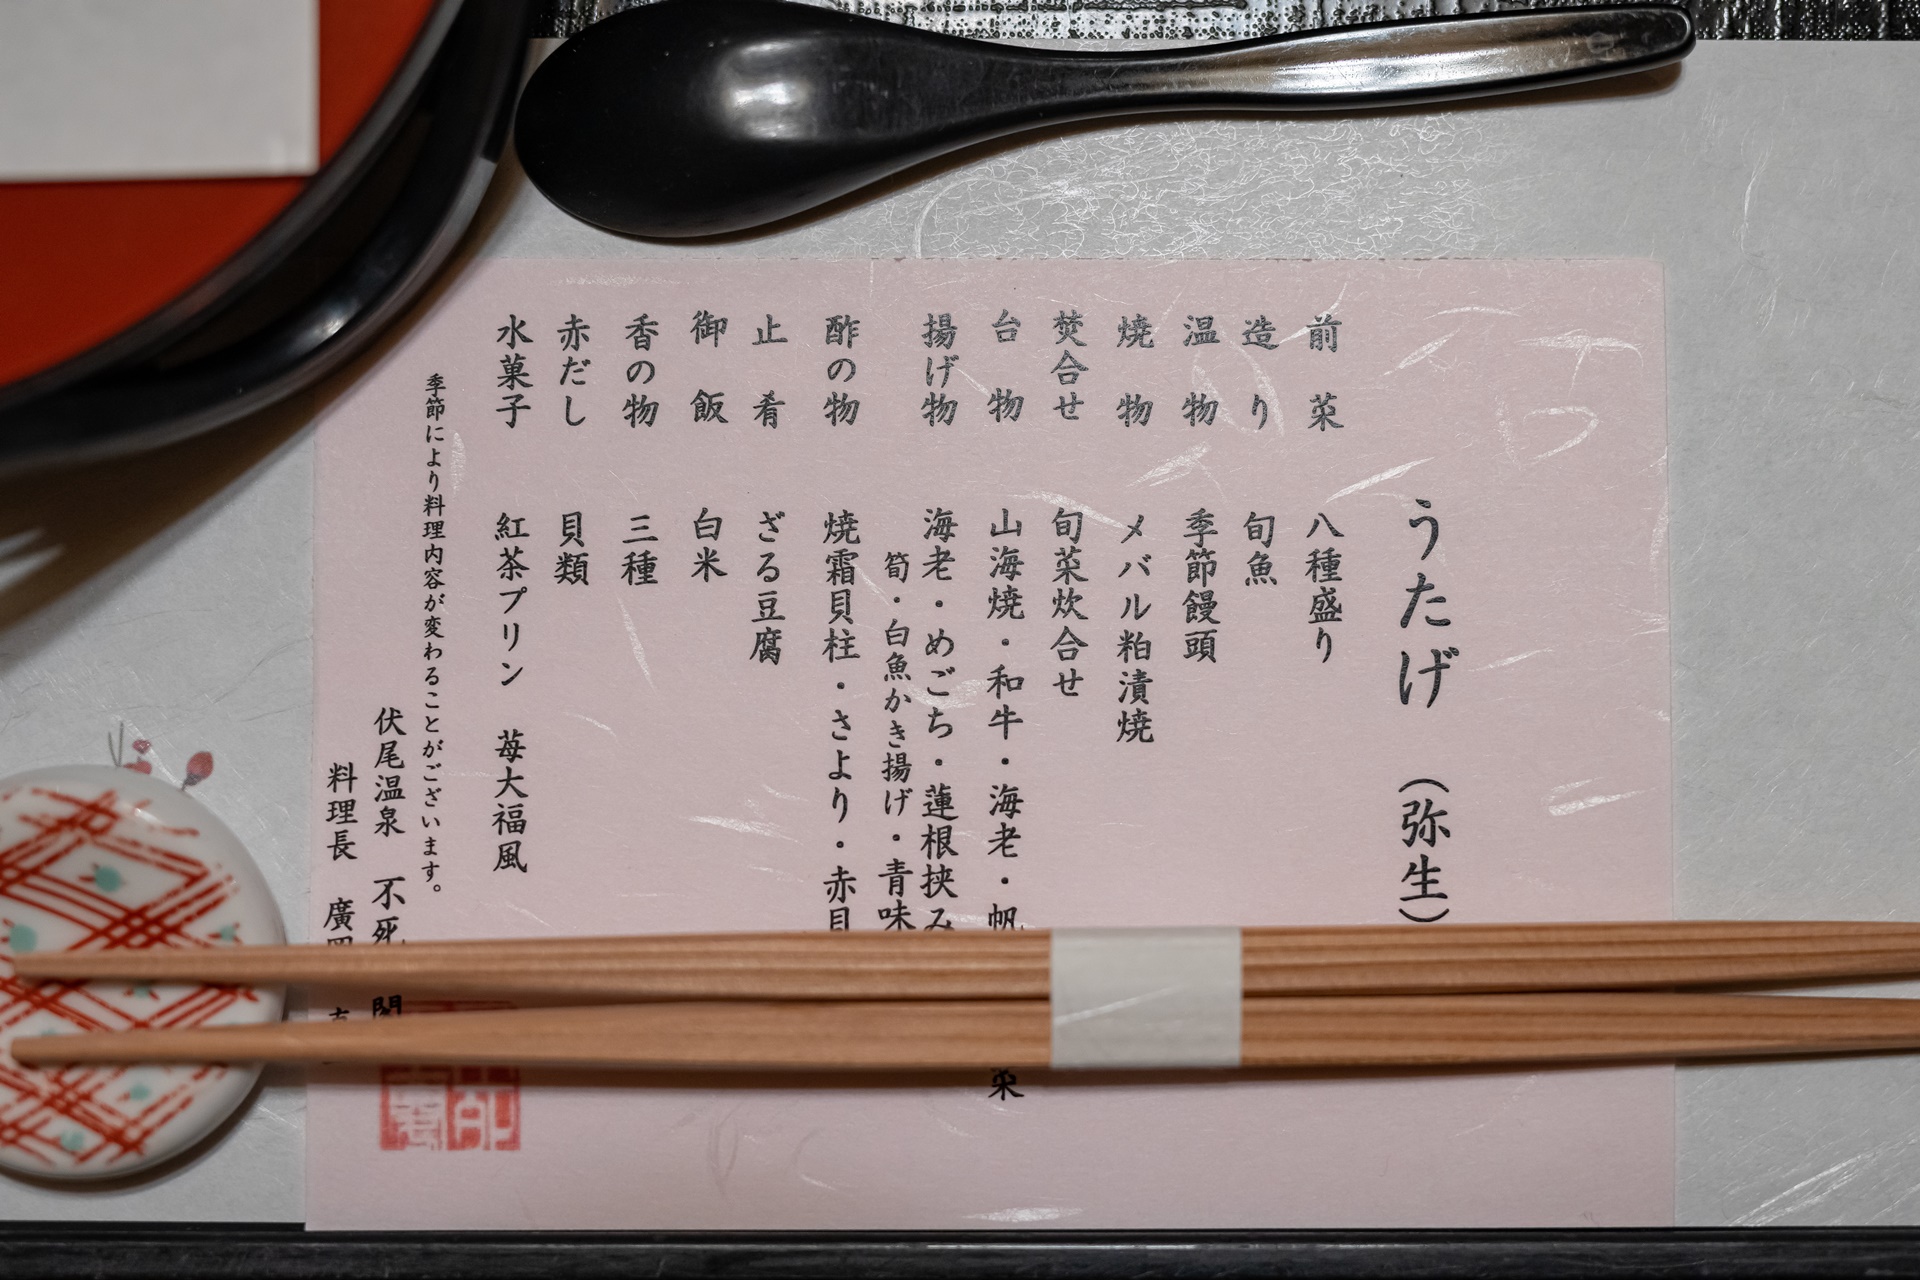 うたげ （弥生）
前菜 八種盛り
造り 旬魚
温物 季節饅頭
焼物 メバル粕漬焼
焚合せ 旬菜炊合せ
台物 山海焼・和牛・海老・帆 菜
揚げ物 海老・めごち・蓮根挟み
筍・白魚かき揚げ・青味
酢の物 焼霜貝柱・さより・赤貝
止肴 ざる豆腐
御飯 白米
香の物 三種
赤だし 貝類
水菓子 紅茶プリン 苺大福風
季節により料理内容が変わることがございます。
伏尾温泉 不死 閣
料理長 廣